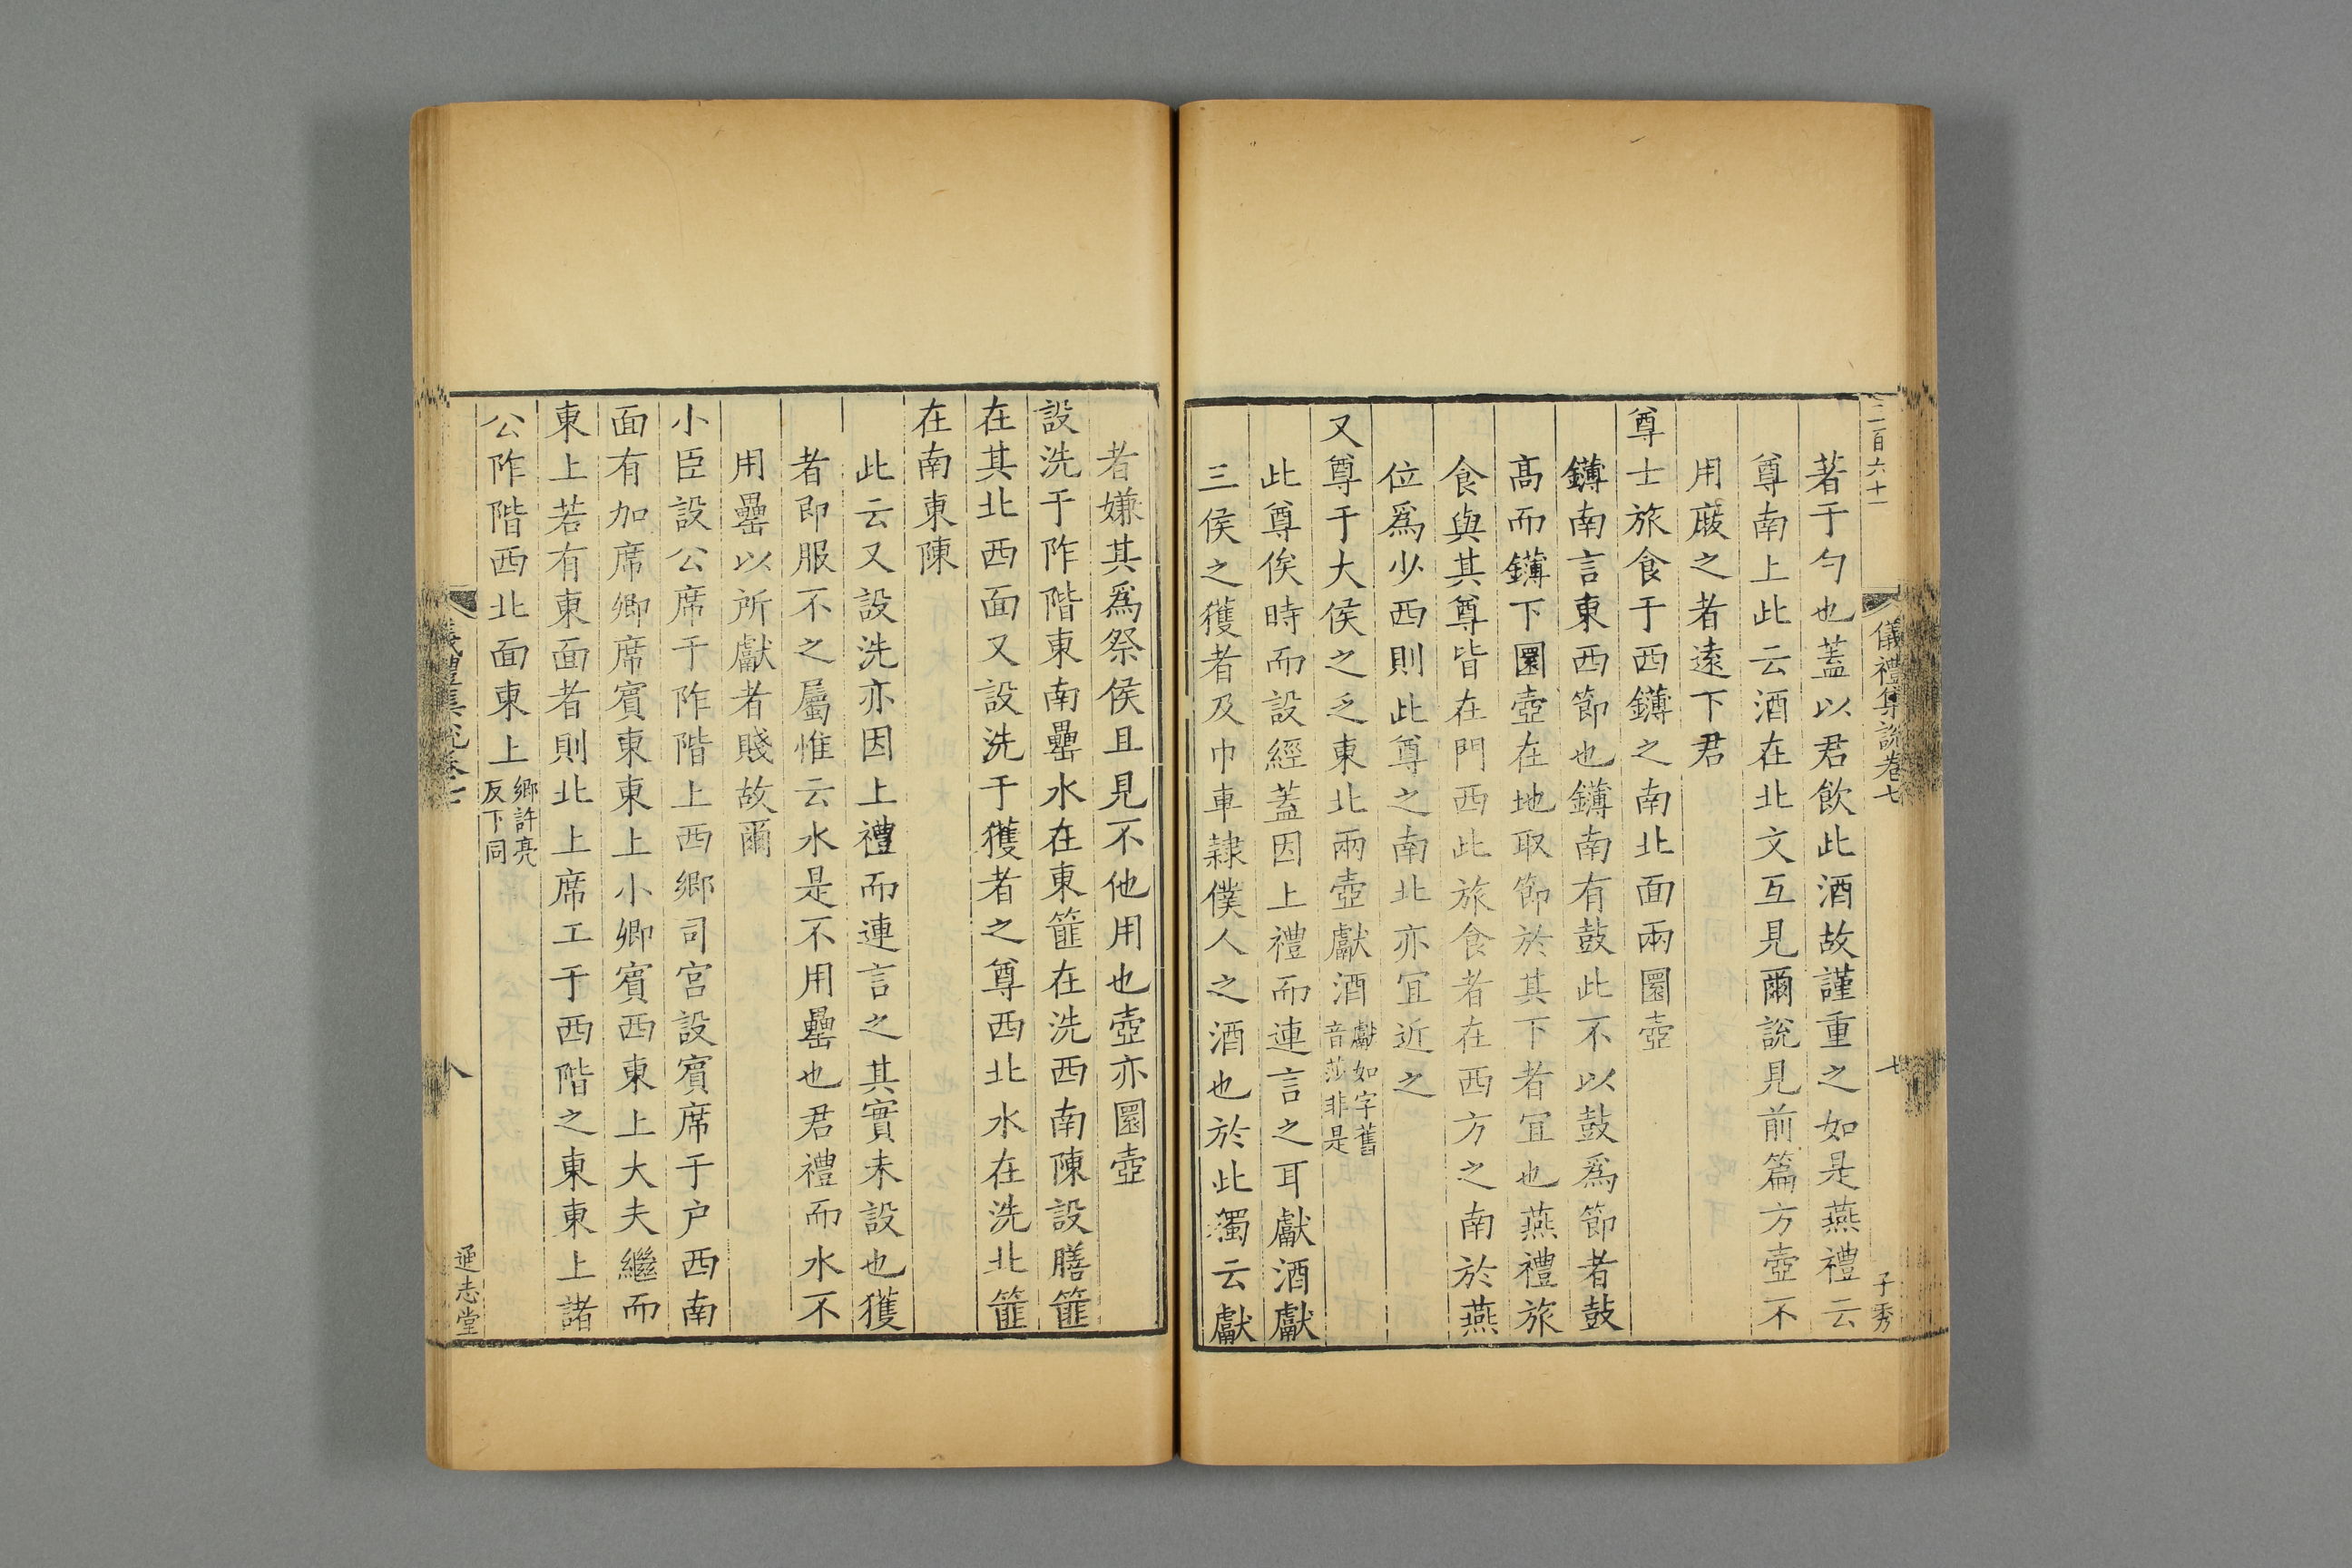 三百六十一
儀禮集說卷七
七
子秀
著于勺也蓋以君飲此酒故謹重之如是燕禮云
尊南上此云酒在北文互見爾說見前篇方壺不
用㢈之者遠下君
尊士旅食于西鑮之南北面兩圜壺
鑮南言東西節也鑮南有鼓此不以鼓爲節者鼓
高而鑮下圜壺在地取節於其下者宜也燕禮旅
食與其尊皆在門西此旅食者在西方之南於燕
位爲少西則此尊之南北亦宜近之
又尊于大侯之乏東北兩壺獻酒獻如字舊音莎非是
此尊俟時而設經蓋因上禮而連言之耳獻酒獻
三侯之獲者及巾車隷僕人之酒也於此獨云獻
者嫌其爲祭侯且見不他用也壺亦圜壺
設洗于阼階東南罍水在東篚在洗西南陳設膳篚
在其北西面又設洗于獲者之尊西北水在洗北篚
在南東陳
此云又設洗亦因上禮而連言之其實未設也獲
者即服不之屬惟云水是不用罍也君禮而水不
用罍以所獻者賤故爾
小臣設公席于阼階上西鄉司宮設賔席于户西南
面有加席卿席賔東東上小卿賔西東上大夫繼而
東上若有東面者則北上席工于西階之東東上諸
公阼階西北面東上鄉許亮反下同
儀禮集說卷七
八
通志堂